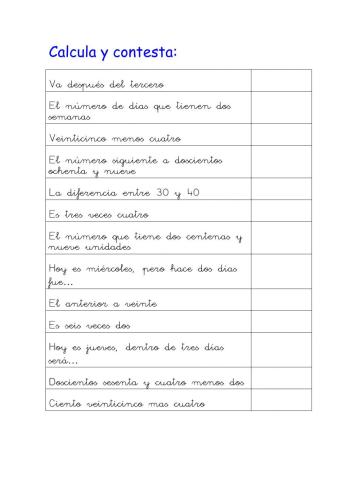 Calcula y contesta:
Va después del tercero
El número de días que tienen dos
semanas
Veinticinco menos cuatro
El número siguiente a doscientos
ochenta y nueve
La diferencia entre 30 y 40
Es tres veces cuatro
El número que tiene dos centenas y
nueve unidades
Hoy es miércoles, pero hace dos días
fue...
El anterior a veinte
Es seis veces dos
Hoy es jueves, dentro de tres días
será...
Doscientos sesenta y cuatro menos dos
Ciento veinticinco mas cuatro